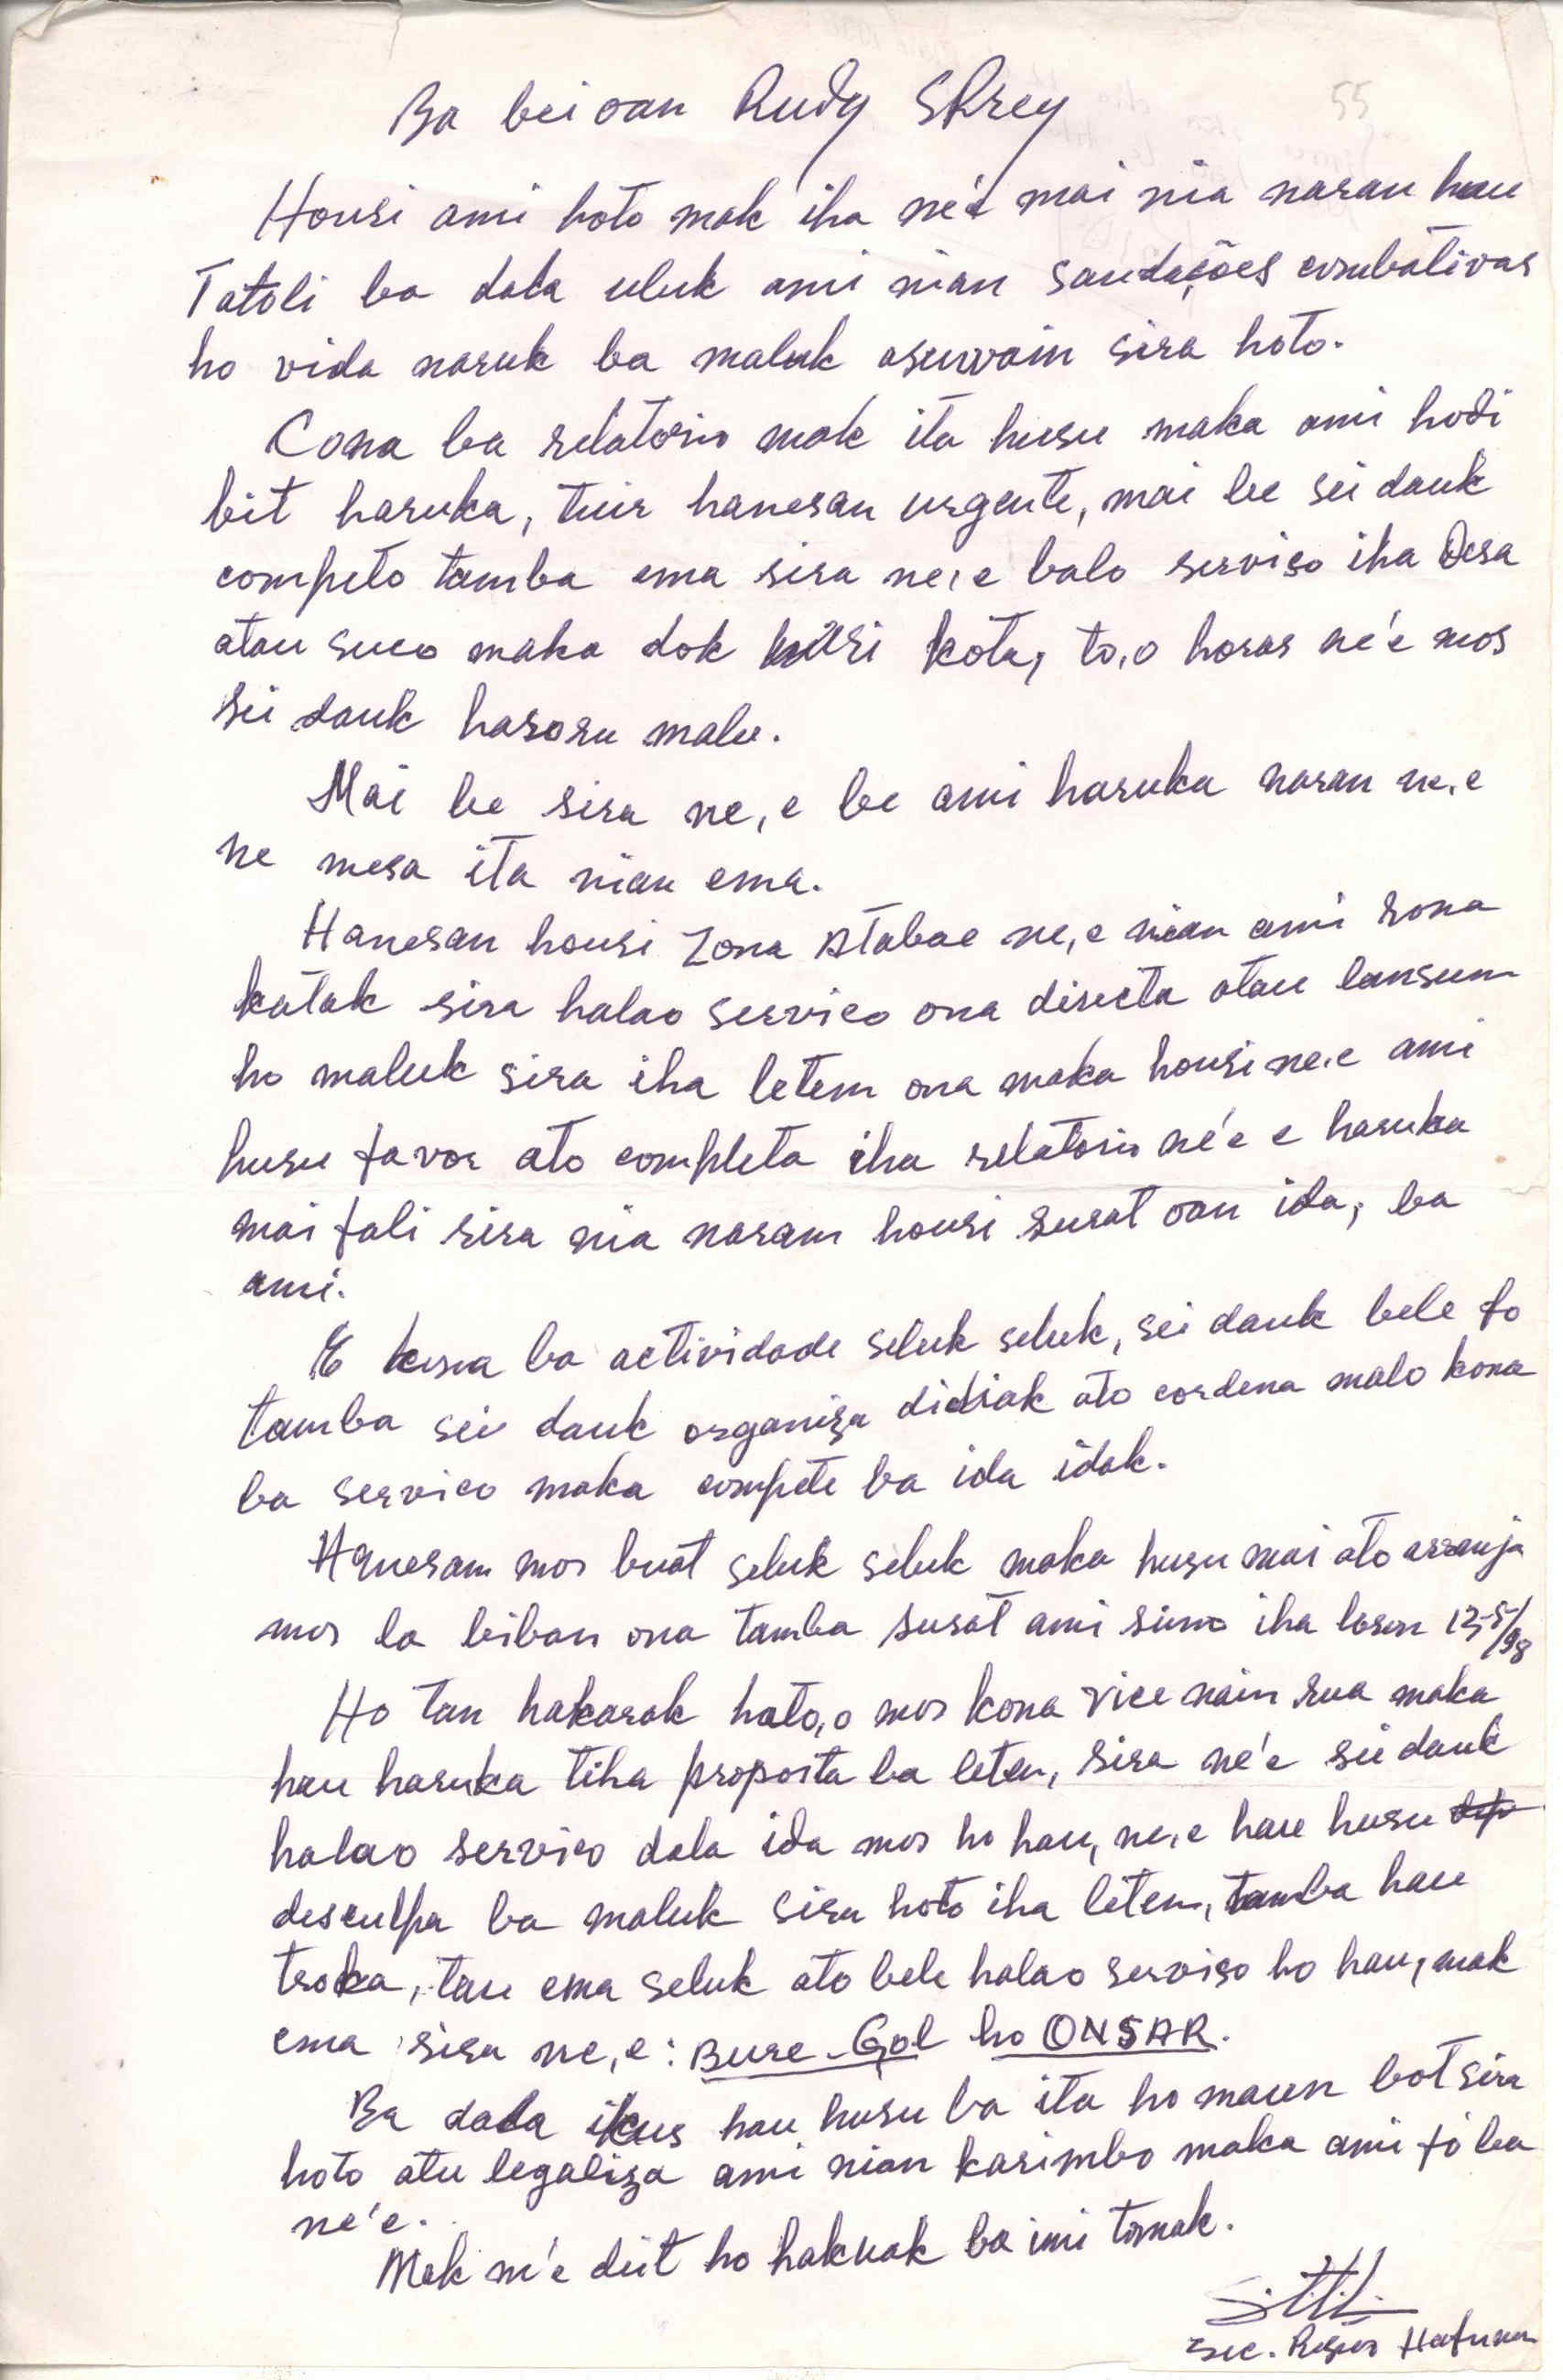 55
Ba bei oan Rudy
Housi ami hoto mak iha ne'e mai nia naran hau
Tatoli ba dala uluk ami nian saudações combativas
ho vida naruk ba maluk asuwain sira hoto.
Cona ba relatorio mak ita husu maka ami hodi
bit haruka, tuir hanesan urgente, mai be sei dauk
competo tamba ema sira ne,e balo serviso iha Desa
atau suco maka dok husi kota, to,o horas ne'e mos
sei dauk hasoru malu.
Mai be sira ne,e be ami haruka naran ne,e
ne mesa ita nian ema.
Hanesan housi Zona Atabae ne,e nian ami rona
katak sira halao servico ona directa atau lansum
ho maluk sira iha letem ona maka housi ne,e ami
husu favor ato completa iha relatorio ne'e e haruka
mai fali sira nia naram housi surat oan ida, ba
ami.
E kona ba actividade seluk seluk, sei dauk bele fo
tamba sei dauk organiza didiak ato cordena malo kona
ba servico maka compete ba ida idak.
Hanesam mos buat seluk seluk maka husu mai ato arranja
mos la biban ona tamba surat ami simo iha loron 13-5/98
Ho tan hakarak hato,o mos kona vice nain rua maka
hau haruka tiha proposta ba leten, sira ne'e sei dauk
halao servico dala ida mos ho hau, ne,e hau husu
desculpa ba maluk sira hoto iha letem, tamba hau
troka, tau ema seluk ato bele halao serviso ho hau, mak
ema sira ne,e: Bure-Gol ho ONSAR.
Ba dala ikus hau husu ba ita ho maun bot sira
hoto atu legaliza ami nian karimbo maka ami fó ba
ne'e.
Mak ne'e deit ho hakuak ba imi tomak.
Sec.